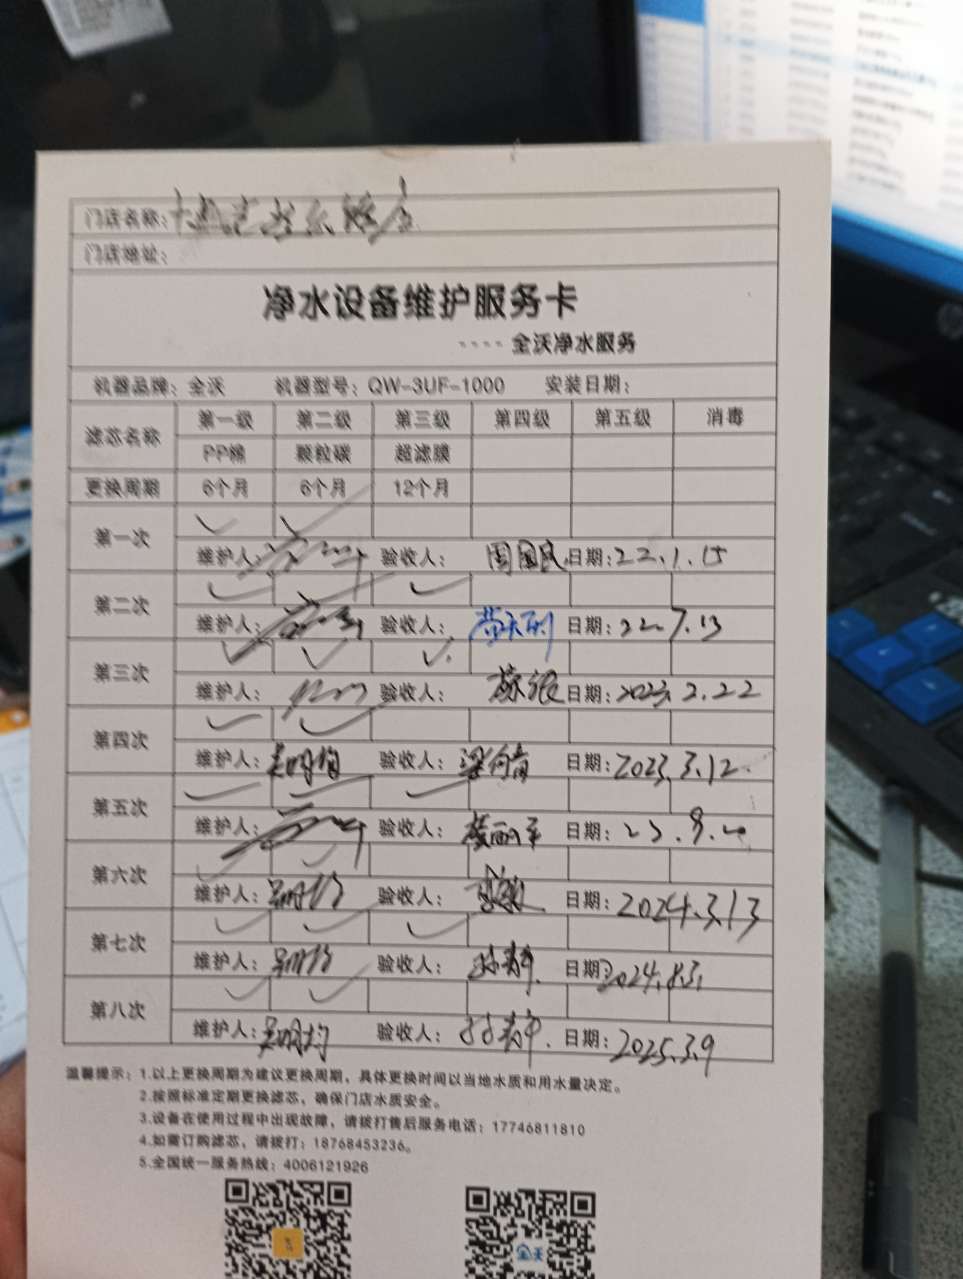 门店名称：
门店地址：
净水设备维护服务卡
---- 全沃净水服务
机器品牌：全沃 机器型号：QW-3UF-1000 安装日期：
滤芯名称 第一级 第二级 第三级 第四级 第五级 消毒
PP棉 颗粒碳 超滤膜
更换周期 6个月 6个月 12个月
第一次 ✓ ✓
维护人： 验收人：周国民 日期：22.1.15
第二次 ✓ ✓ ✓
维护人： 验收人： 日期：22.7.13
第三次 ✓ ✓ ✓
维护人： 验收人： 日期：2023.2.22
第四次 ✓ ✓
维护人： 验收人： 日期：2023.3.12
第五次 ✓ ✓ ✓
维护人： 验收人： 日期：23.9.20
第六次 ✓ ✓
维护人： 验收人： 日期：2024.3.13
第七次 ✓ ✓ ✓
维护人： 验收人： 日期：
第八次 ✓ ✓
维护人： 验收人： 日期：2025.3.9
温馨提示：1.以上更换周期为建议更换周期，具体更换时间以当地水质和用水量决定。
2.按照标准定期更换滤芯，确保门店水质安全。
3.设备在使用过程中出现故障，请拨打售后服务电话：17746811810
4.如需订购滤芯，请拨打：18768453236。
5.全国统一服务热线：4006121926